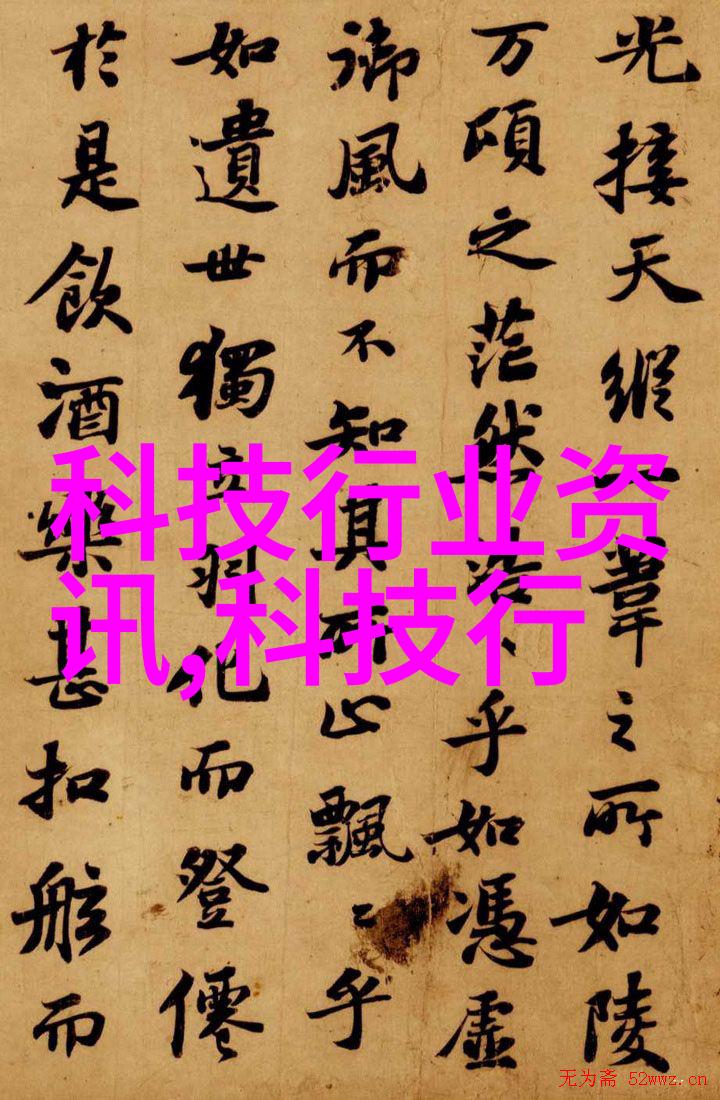 光接天縱一葦之所如陵
万頃之茫然浩〻乎如憑虛
御風而不知其所止飄〻乎
如遺世獨立羽化而登僊
於是飲酒樂甚扣舷而
科技行业资
讯,科技行
无为斋 52wwz.cn